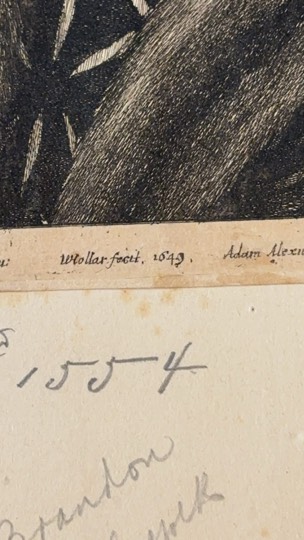 WHollar fecit, 1649, Adam Alex
1554
Brandon